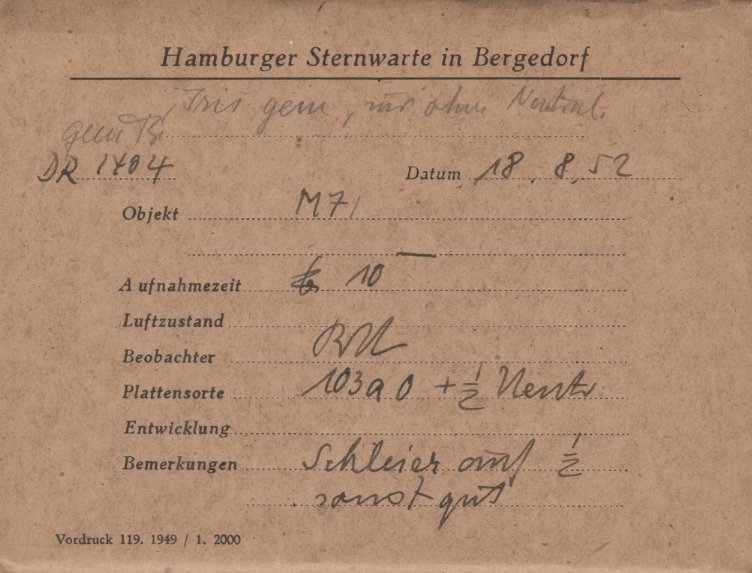 Hamburger Sternwarte in Bergedorf
Iris gem, nur ohne Neutral.
gem
DR 1404 Datum 18. 8. 52
Objekt M71
Aufnahmezeit 10
Luftzustand
Beobachter
Plattensorte 103a O + ½ Neutr
Entwicklung
Bemerkungen Schleier auf ½
sonst gut
Vordruck 119. 1949 / 1. 2000